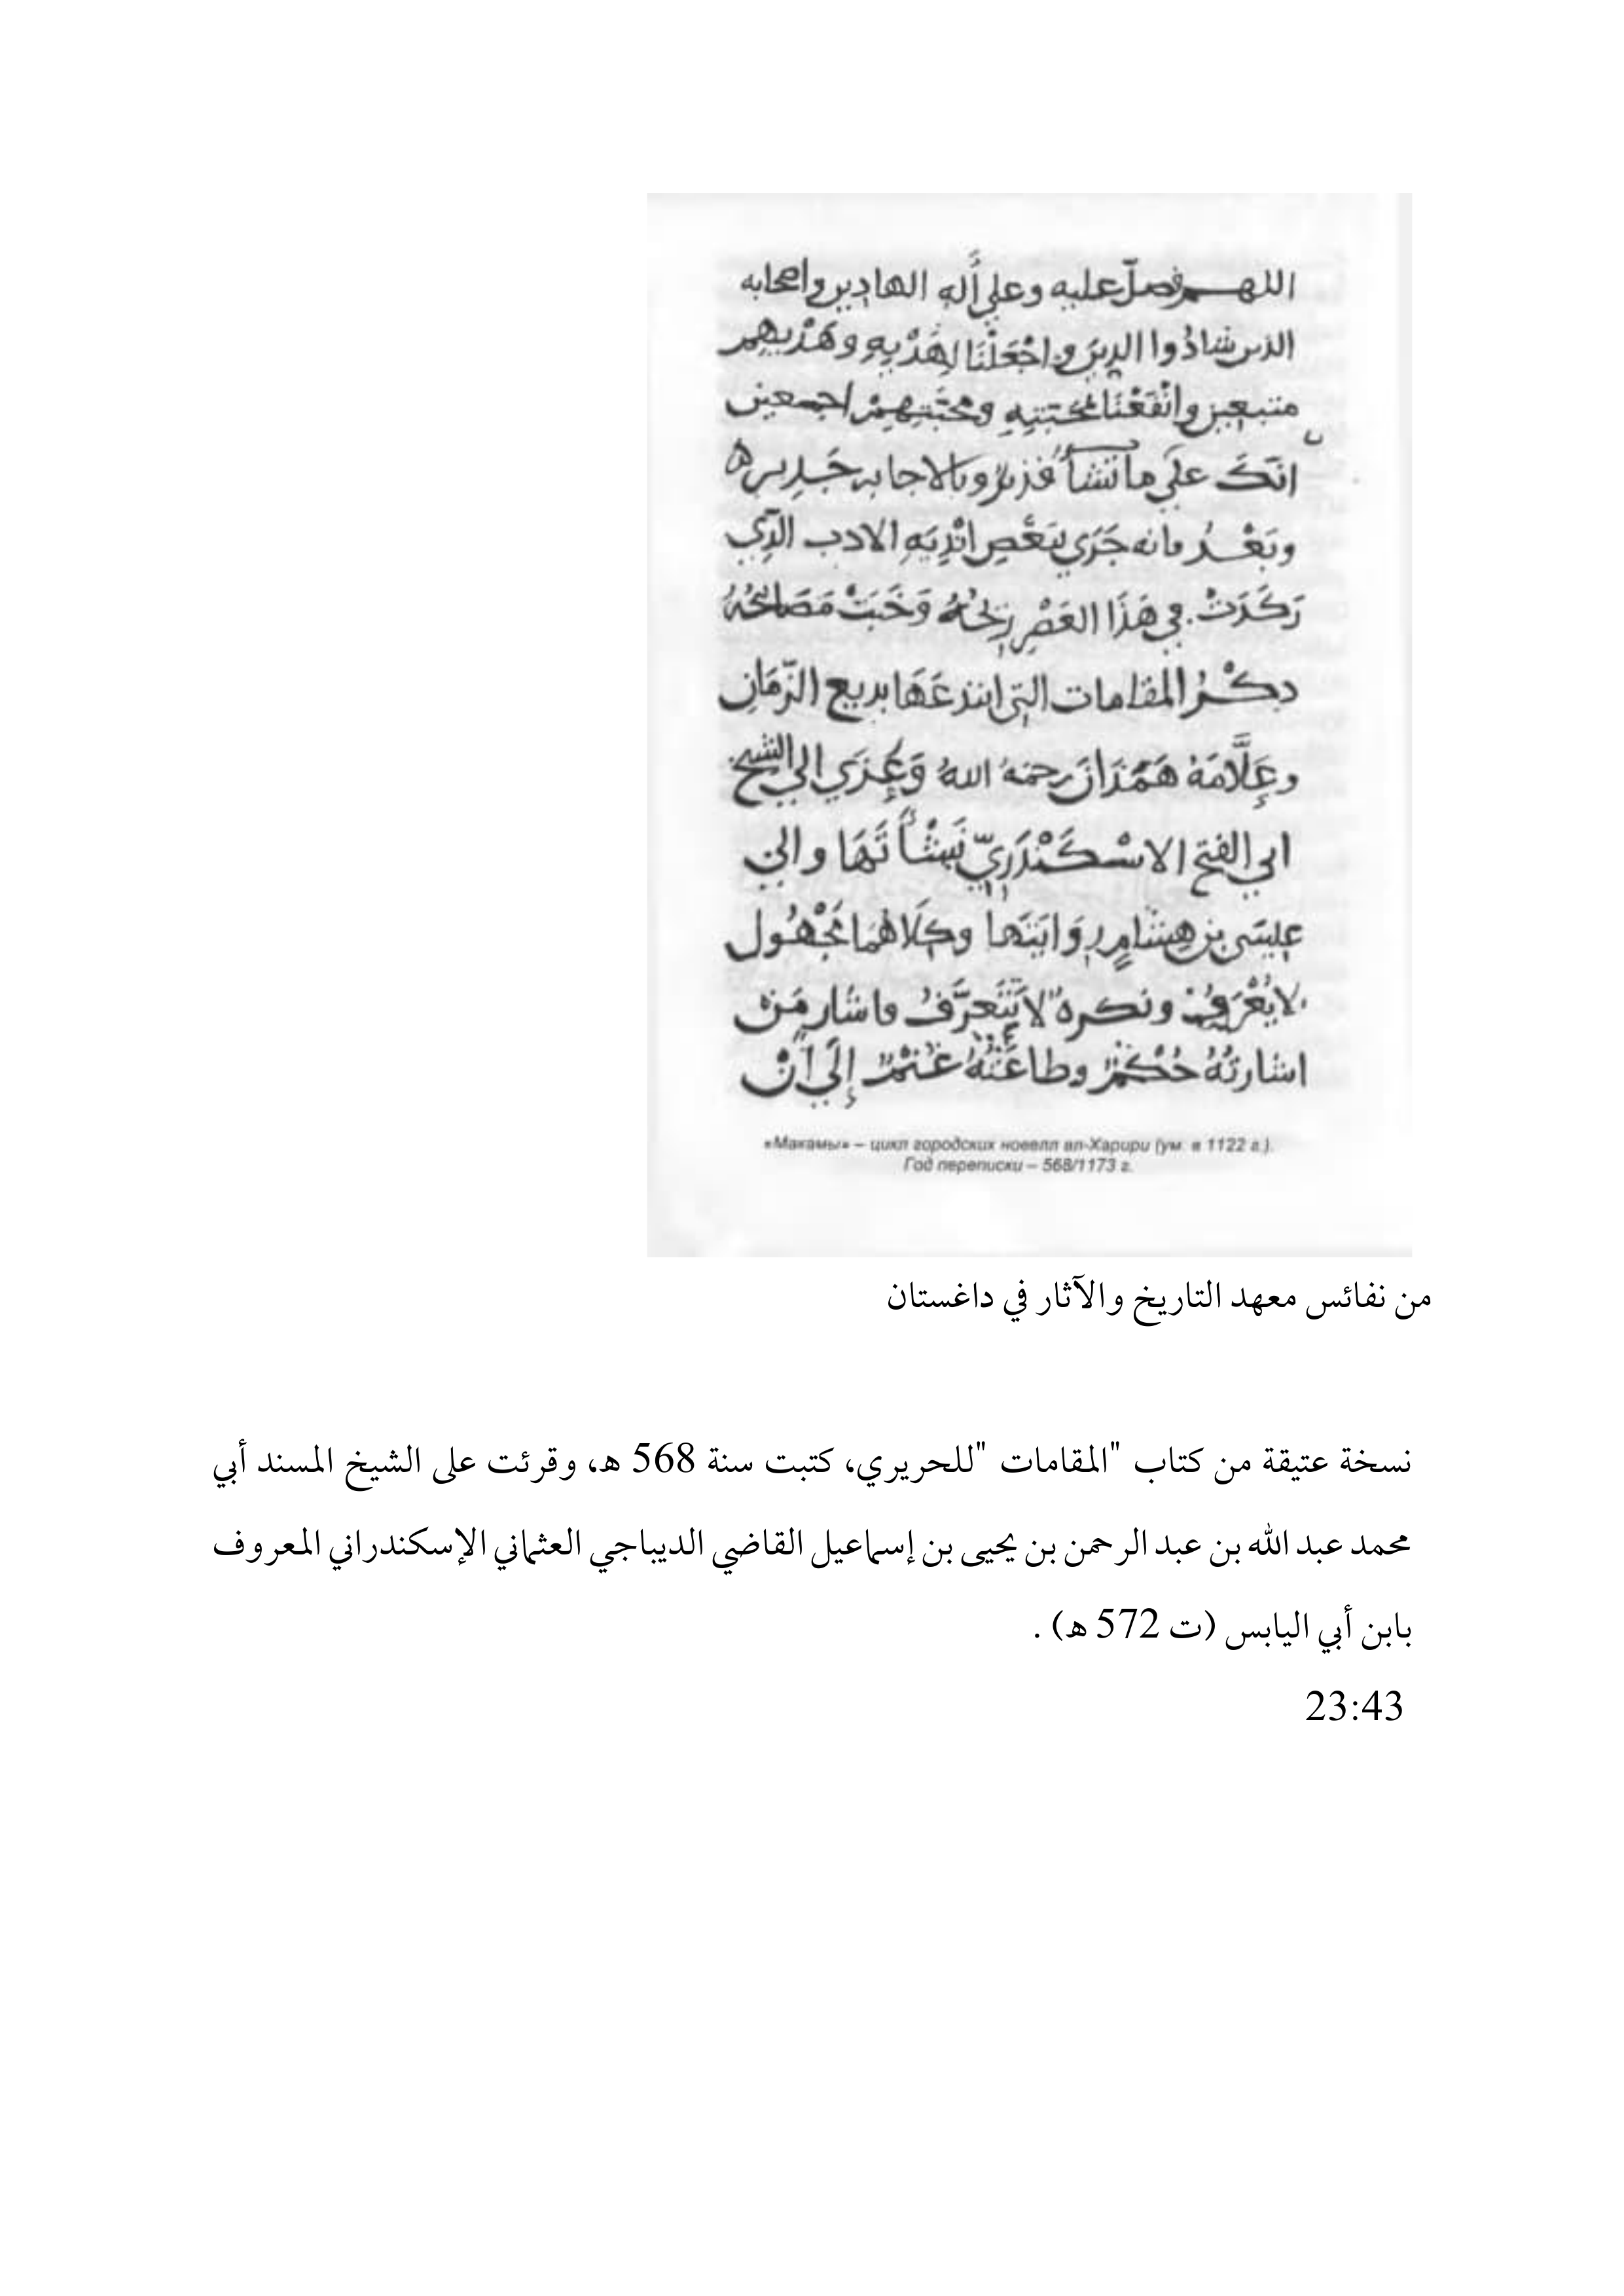 اللهم فصل عليه وعلى أله الهادين واصحابه
الذين شادُوا الدينَ واجْعَلْنَا لِهَدْيِهِ وهَدْيهِم
متبعين وانْفَعْنَا بمحبَّتِهِ ومحَبَّتِهِمْ اجمعين
انكَ علَى ما تشأ قديرٌ وبالاجابه جَدِير
وبَعْدُ فانه جَرَى ببَعْضِ انْدِيَهِ الادب الذِي
رَكَدَتْ في هَذَا العَصْرِ رِيحُهُ وَخَبَتْ مَصَابِيحُهُ
ذِكْرُ المقامات التي ابتدعَهَا بديع الزّمَانِ
وعَلَّامَهُ هَمَذَانَ رحمهُ اللهُ وَعَزَي الي الشيخ
ابي الفتح الاسْكَنْدَرِيّ نَشْأَتَهَا والي
عيسَى بن هِشَامٍ رِوَايَتَهَا وكِلَاهُمَا مَجْهُول
لا يُعْرَفُ ونكره لا تَتَعَرَّفُ فاشار مَنْ
اشارتُهُ حُكْمٌ وطاعَتُهُ غُنْمٌ إلَي أَنْ
«Макамы» – цикл городских новелл ал-Харири (ум. в 1122 г.).
Год переписки – 568/1173 г.
من نفائس معهد التاريخ والآثار في داغستان
نسخة عتيقة من كتاب "المقامات "للحريري، كتبت سنة 568 هـ، وقرئت على الشيخ المسند أبي
محمد عبد الله بن عبد الرحمن بن يحيى بن إسماعيل القاضي الديباجي العثماني الإسكندراني المعروف
بابن أبي اليابس (ت 572 هـ) .
23:43